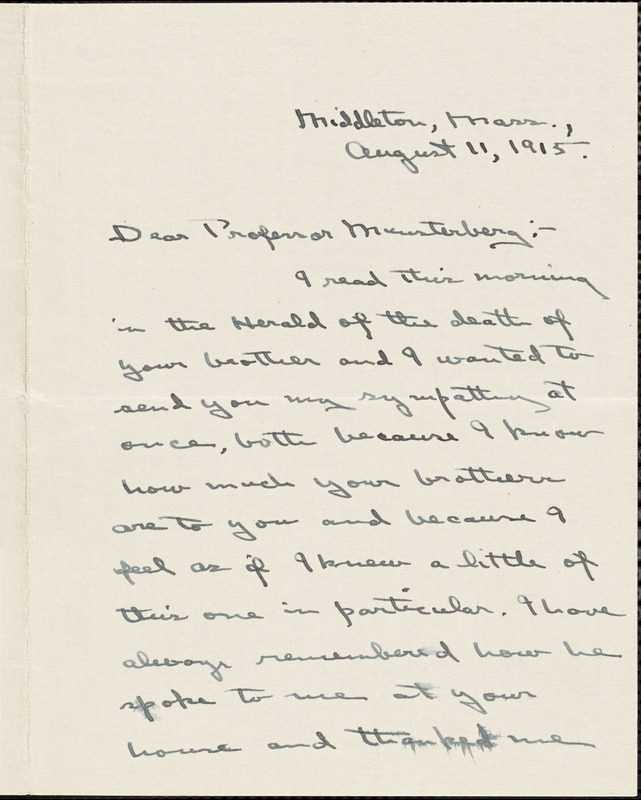 Middleton, Mass.,
August 11, 1915.
Dear Professor Munsterberg:-
I read this morning
in the Herald of the death of
your brother and I wanted to
send you my sympathy at
once, both because I know
how much your brothers
are to you and because I
feel as if I knew a little of
this one in particular. I have
always remembered how he
spoke to me at your
house and thanked me